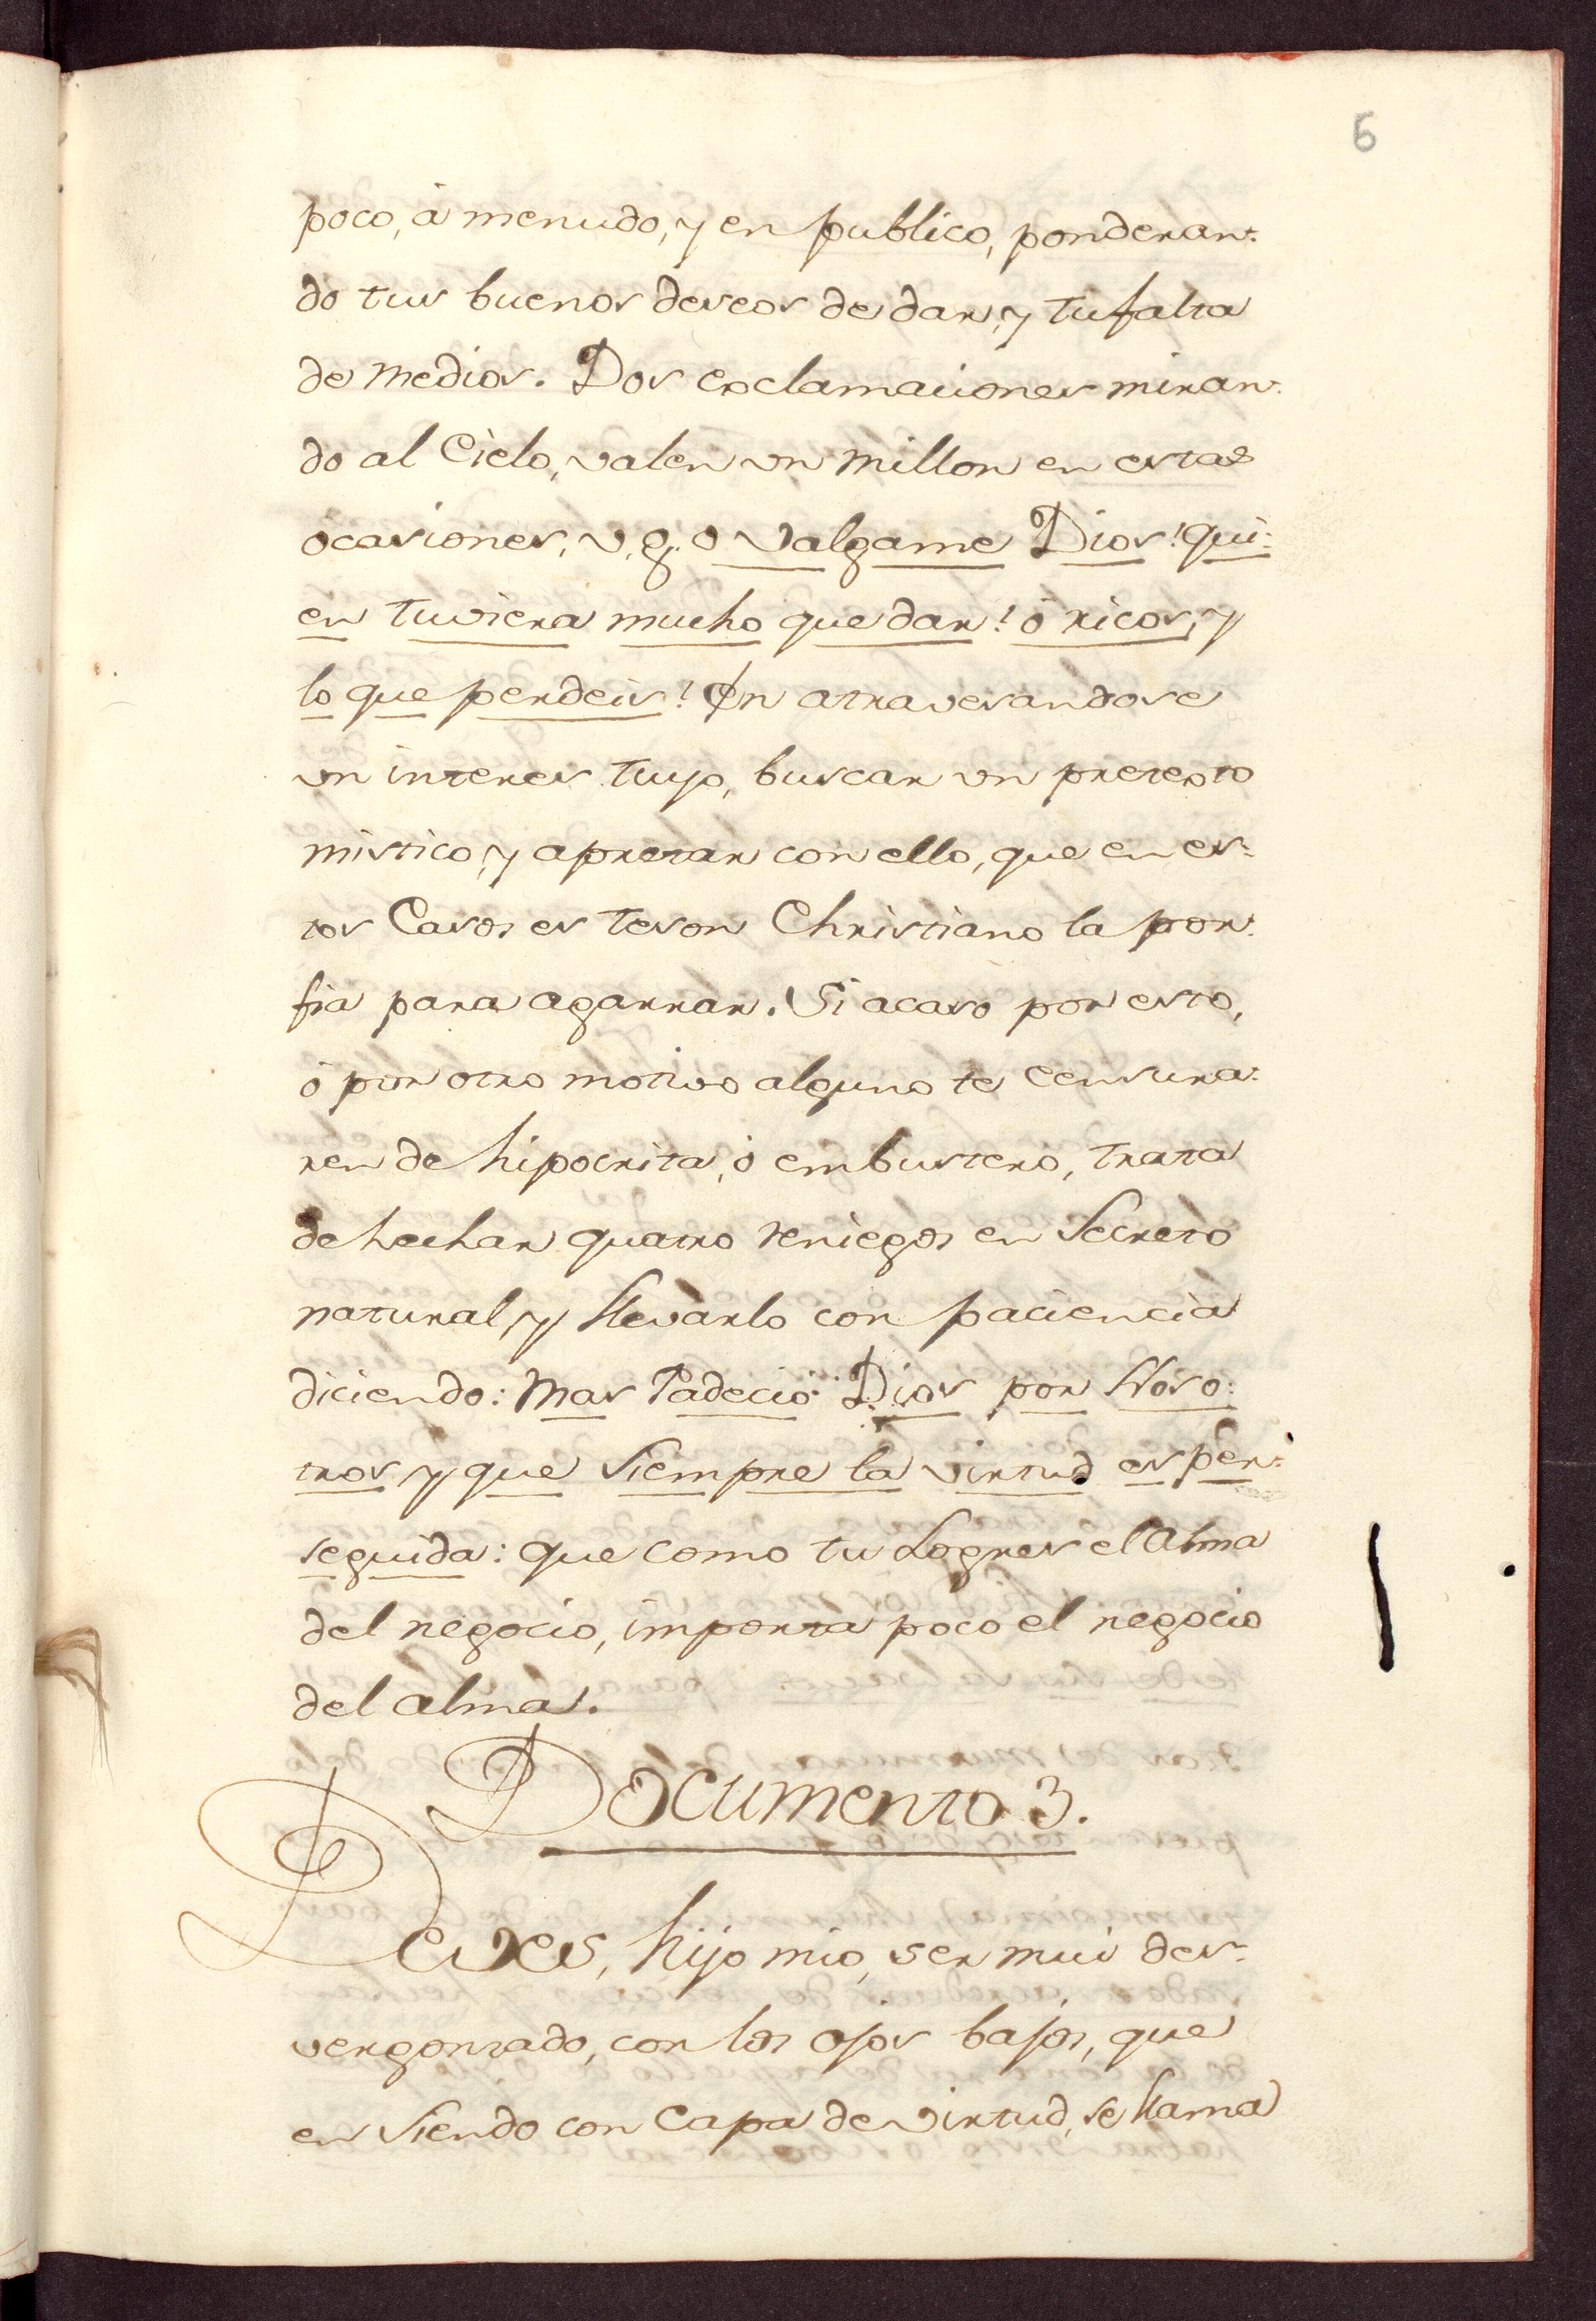 6
poco, à menudo, y en publico, ponderan:
do tus buenos deseos de dar, y tu falta
de medios. Dos exclamaciones miran:
do al Cielo, valen un millon en estas
ocasiones, v. g. o valgame Dios! qui:
en tuviera mucho que dar! ò ricos, y
lo que perdeis! En atravesandose
un interes tuyo, buscar un pretexto
mistico, y apretar con ello, que en es:
tos Casos es teson Christiano la por:
fia para agarrar. Si acaso por esto,
ò por otro motivo alguno te censura:
ren de hipocrita, ò embustero, trata
de hechar quatro reniegos en secreto
natural, y llevarlo con paciencia
diciendo: Mas Padeciò Dios por Noso:
tros y que siempre la virtud es per:
seguida: que como tu Logres el Alma
del negocio, importa poco el negocio
del alma.
Documento 3.
Deves, hijo mio, ser mui des-
vergonzado, con los ojos bajos, que
en siendo con Capa de virtud, se llama